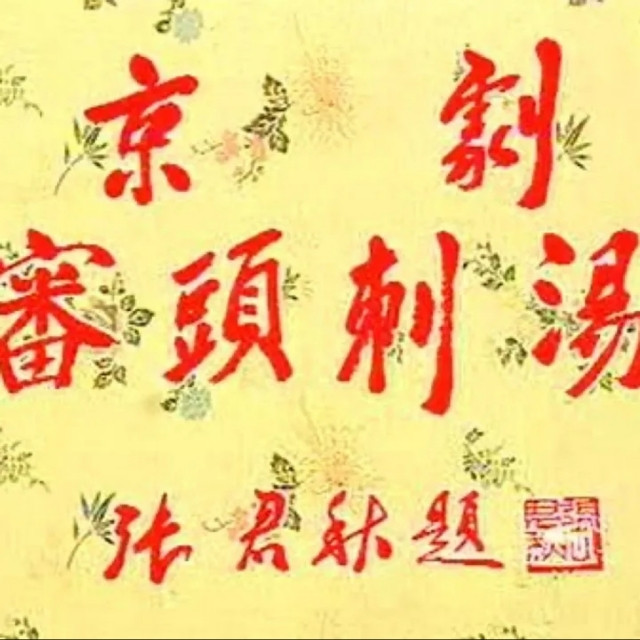 京劇
審頭刺湯
張君秋題